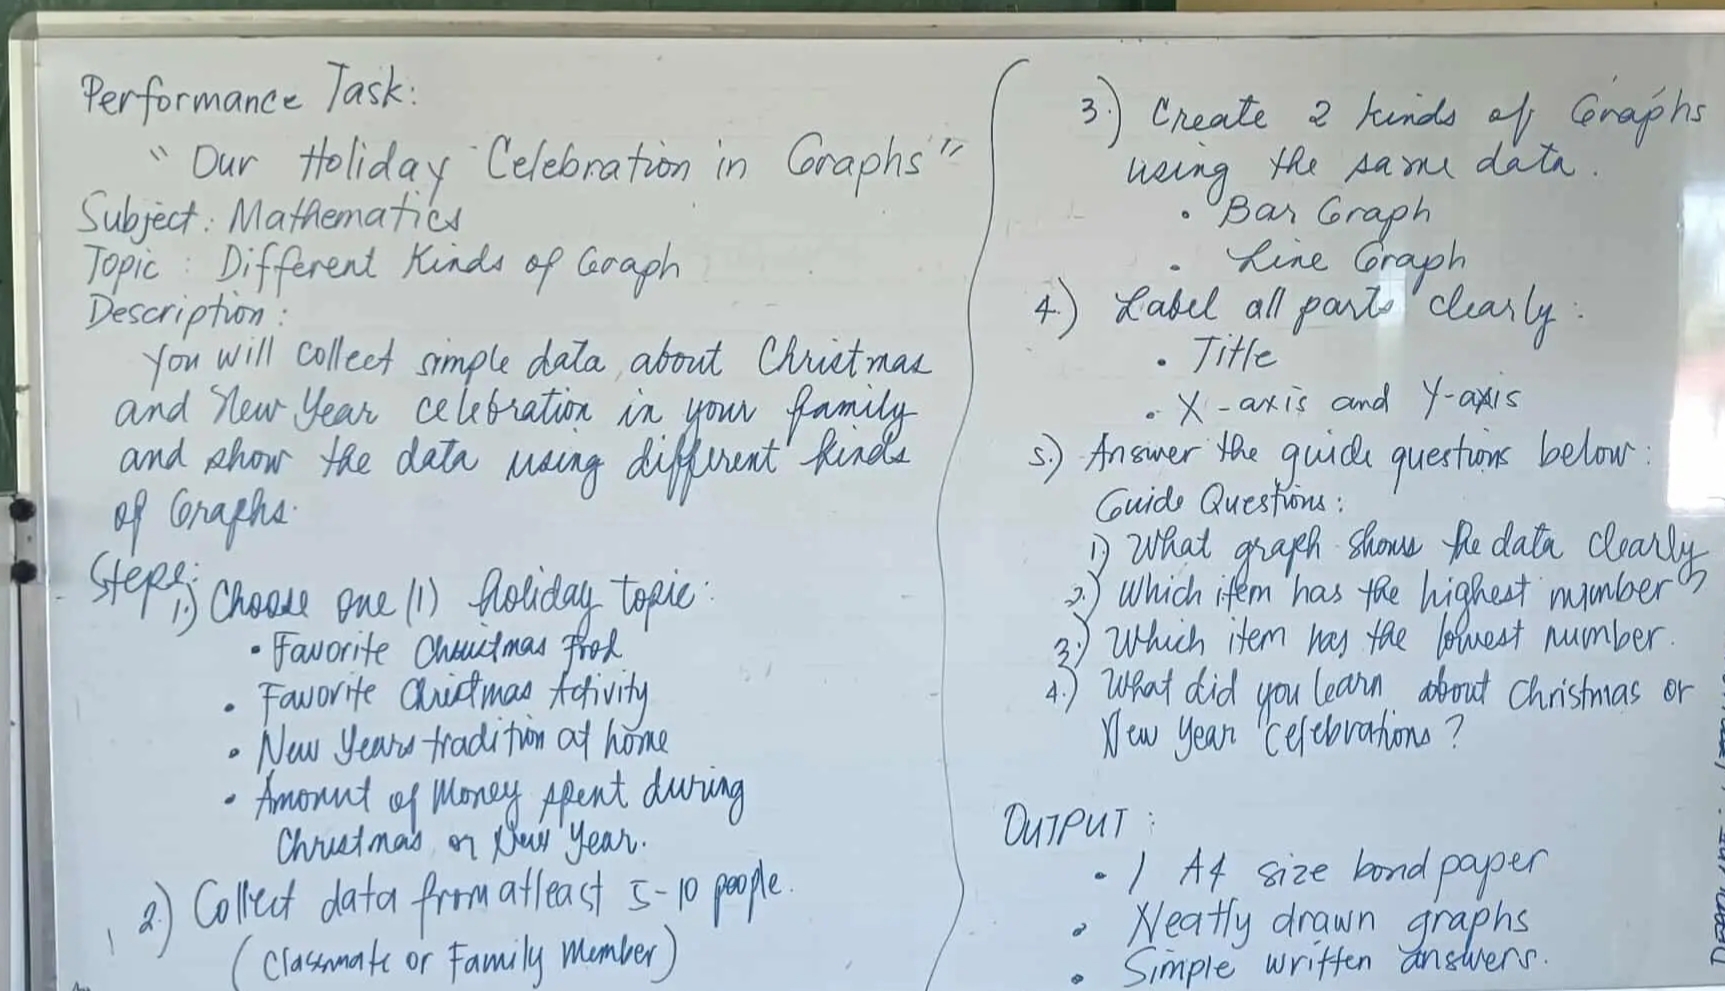 Performance Task:
"Our Holiday Celebration in Graphs"
Subject: Mathematics
Topic: Different Kinds of Graph
Description:
You will collect simple data about Christmas
and New Year celebration in your family
and show the data using different kinds
of Graphs.
Steps:
1.) Choose one (1) holiday topic:
• Favorite Christmas Food
• Favorite Christmas Activity
• New Years tradition at home
• Amount of Money spent during
Christmas or New Year.
2.) Collect data from atleast 5-10 people.
(Classmate or Family Member)
3.) Create 2 kinds of Graphs
using the same data.
• Bar Graph
• Line Graph
4.) Label all parts clearly:
• Title
• X-axis and Y-axis
5.) Answer the guide questions below:
Guide Questions:
1.) What graph shows the data clearly?
2.) Which item has the highest number
3.) Which item has the lowest number.
4.) What did you learn about Christmas or
New Year celebrations?
OUTPUT:
• 1 A4 size bond paper
• Neatly drawn graphs
• Simple written answers.